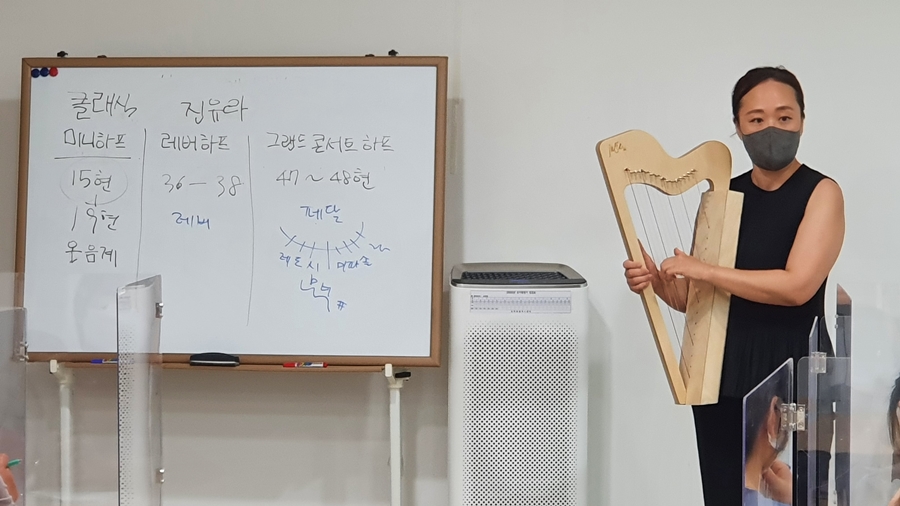 클래식 진유라
미니하프 레버하프 그랜드 콘서트 하프
15현 36-38 47~48현
19현 레버 페달
온음계
레도시 미파솔